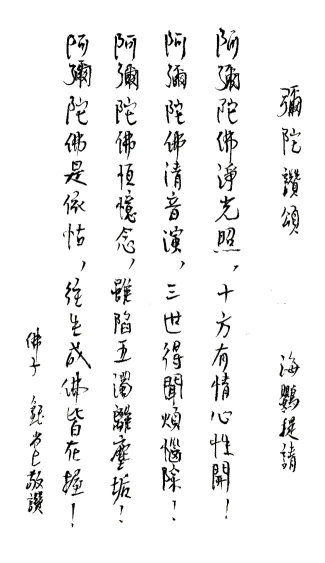 彌陀讚頌 海鸚提請
阿彌陀佛淨光照，十方有情心性開！
阿彌陀佛清音演，三世得聞煩惱除！
阿彌陀佛恒憶念，雖陷五濁離塵垢！
阿彌陀佛是依怙，往生成佛皆在握！
佛子 敬讚